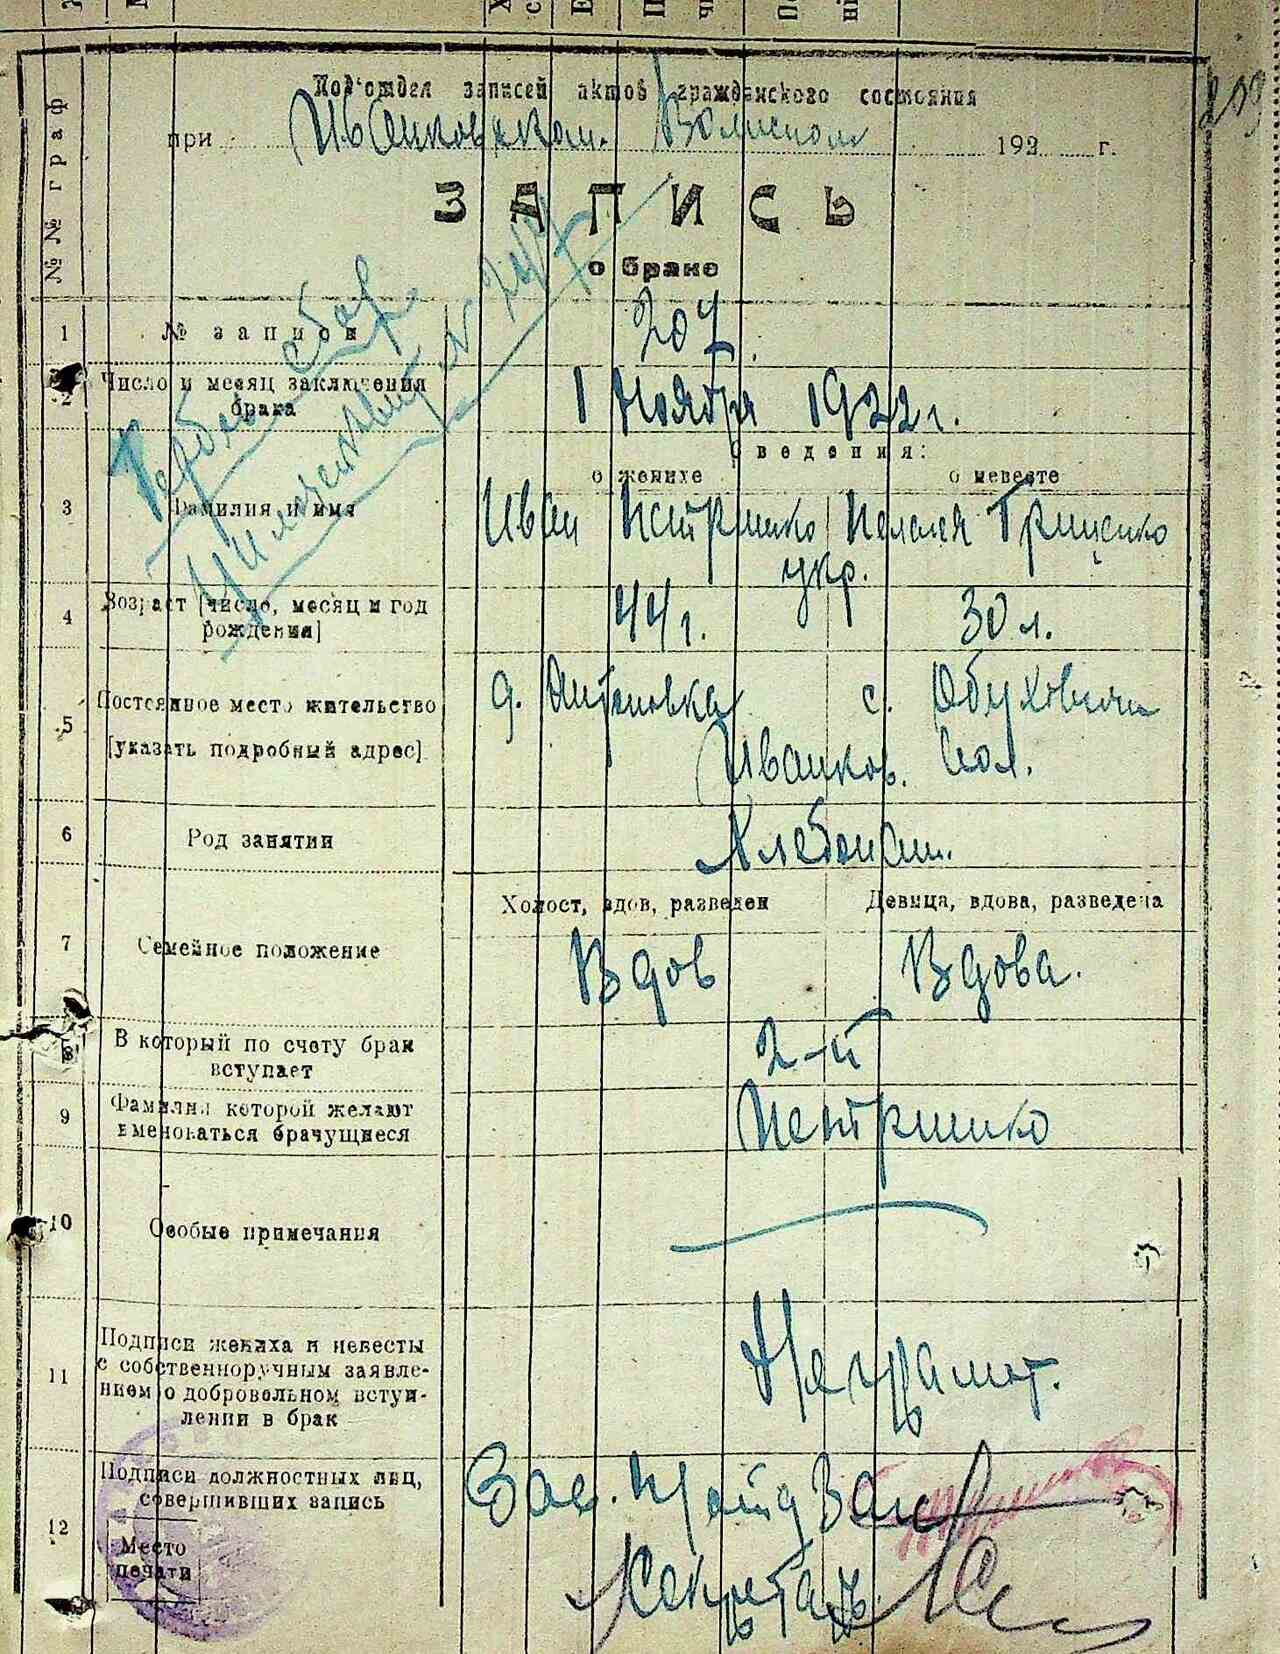 209
Под'отдел записей актов гражданского состояния
при Иванковском. Волиспол 192 г.
ЗАПИСЬ
о браке
№№ граф
1 № записи 207.
2 Число и месяц заключения брака 1 Ноября 1922 г.
Сведения:
о женихе о невесте
3 Фамилия и имя Иван Петришко Пелагея Гриценко
укр.
4 Возраст [число, месяц и год рождения] 44 г. 30 л.
5 Постоянное место жительство д. Антоновка с. Обуховичи
[указать подробный адрес] Иванков. вол.
6 Род занятии Хлебопаш.
Холост, вдов, разведен Девица, вдова, разведена
7 Семейное положение Вдов Вдова.
8 В который по счету брак вступает 2-й
9 Фамилии которой желают именоваться брачущиеся Петришко
10 Особые примечания
11 Подписи жениха и невесты
с собственноручным заявле-
нием о добровольном вступ-
лении в брак Неграмот.
12 Подписи должностных лиц,
совершивших запись Зав.
Место
печати Секретарь